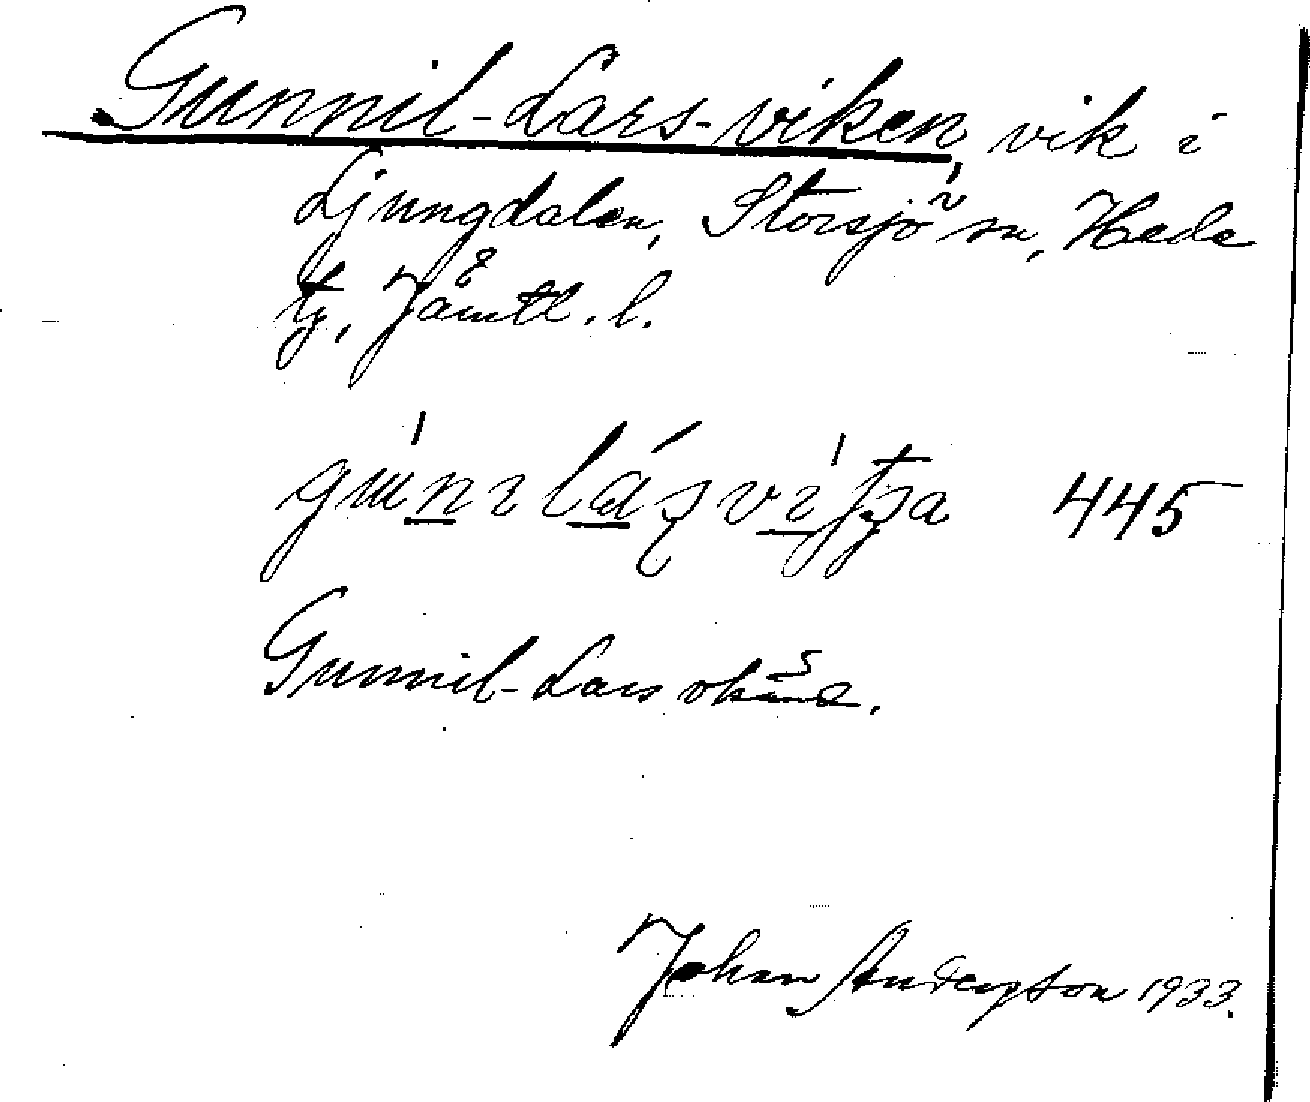 Gunnil-Lars-viken, vik i
Ljungdalen, Storsjö sn, Hede
tg, Jämtl. l.
445
Gunnil-Lars okänd.
Johan Anderson 1933.